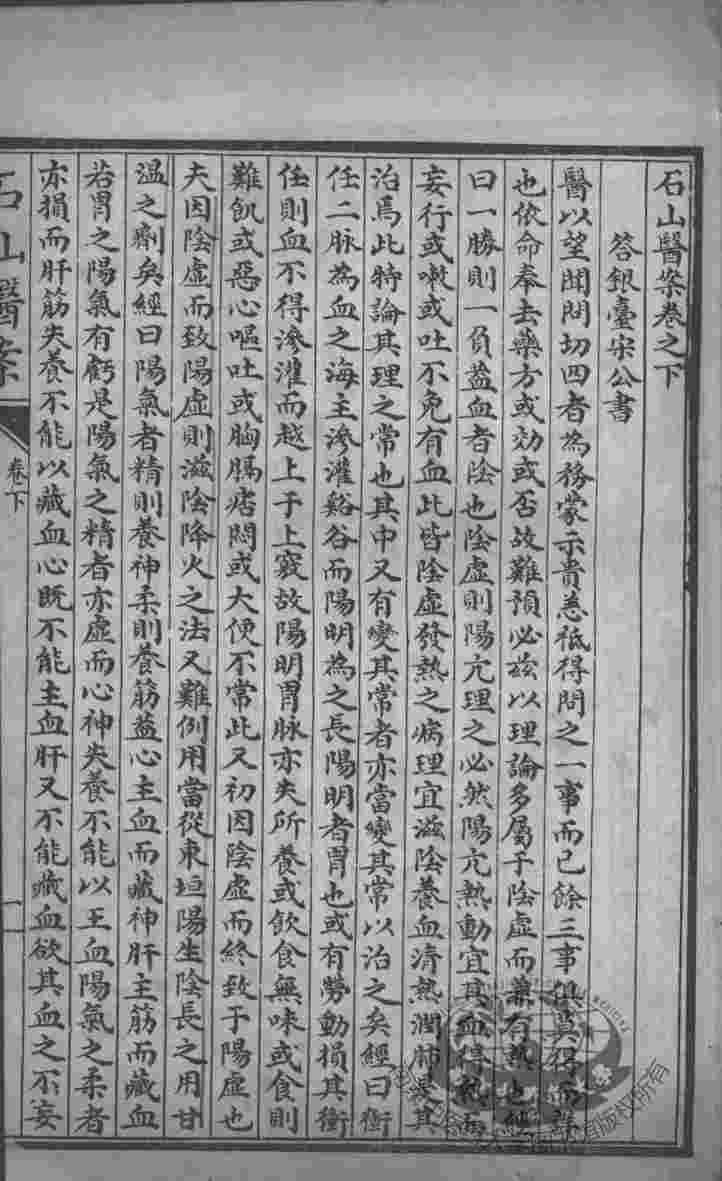 石山醫案卷之下
答銀臺宋公書
醫以望聞問切四者為務蒙示貴恙秪得問之一事而已餘三事俱莫得而詳
也依命奉去藥方或効或否故難預必茲以理論多屬于陰虛而兼有熱也經
曰一勝則一負葢血者陰也陰虛則陽亢理之必然陽亢熱動宜其血得熱而
妄行或嗽或吐不免有血此皆陰虛發熱之病理宜滋陰養血清熱潤肺是其
治焉此特論其理之常也其中又有變其常者亦當變其常以治之矣經曰衝
任二脉為血之海主滲灌谿谷而陽明為之長陽明者胃也或有勞動損其衝
任則血不得滲灌而越上于上竅故陽明胃脉亦失所養或飲食無味或食則
難飢或惡心嘔吐或胸膈痞悶或大便不常此又初因陰虛而終致于陽虛也
夫因陰虛而致陽虛則滋陰降火之法又難例用當從東垣陽生陰長之用甘
温之劑矣經曰陽氣者精則養神柔則養筋葢心主血而藏神肝主筋而藏血
若胃之陽氣有虧是陽氣之精者亦虛而心神失養不能以主血陽氣之柔者
亦損而肝筋失養不能以藏血心既不能主血肝又不能藏血欲其血之不妄
石山醫案
卷下
一
版权所有